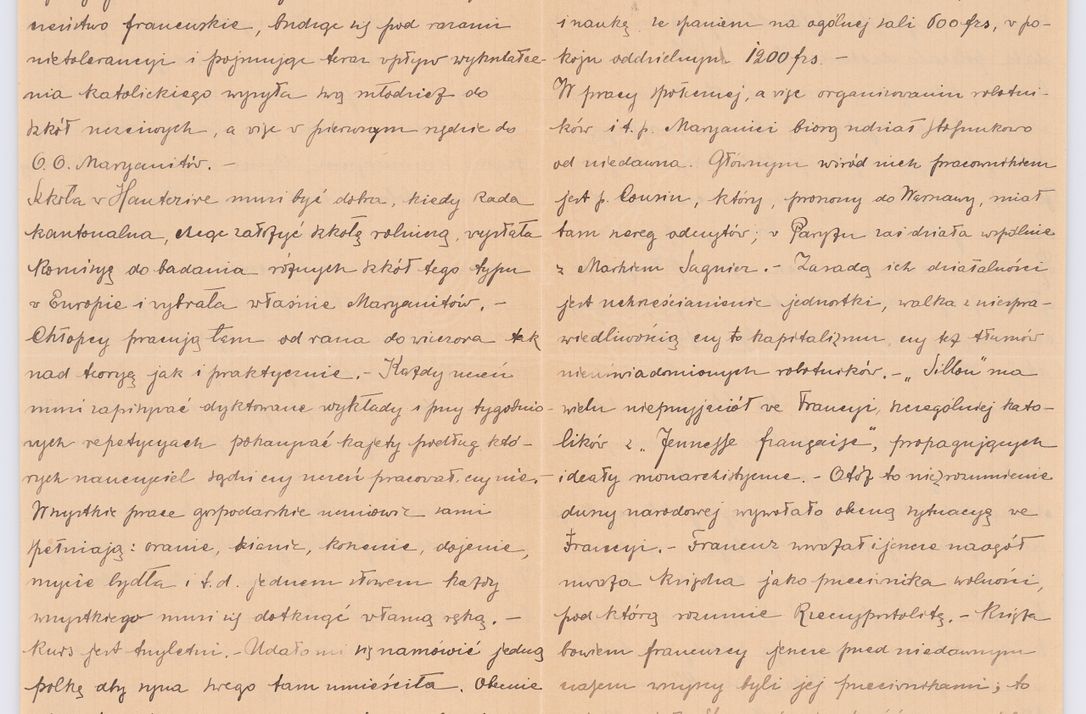 czeństwo francuskie, budząc się pod razami
nietolerancyi i pojmując teraz wpływ wykształce-
nia katolickiego wysyła swą młodzież do
szkół uczciwych, a więc w pierwszym rzędzie do
O.O. Maryanitów. –
Szkoła w Hauterive musi być dobra, kiedy Rada
kantonalna, chcąc założyć szkołę rolniczą, wysłała
Komisyę do badania różnych szkół tego typu
w Europie i wybrała właśnie Maryanitów. –
Chłopcy pracują tam od rana do wieczora tak
nad teoryą jak i praktycznie. – Każdy uczeń
musi zapisywać dyktowane wykłady i przy tygodnio-
wych repetycyach pokazywać kajety podług któ-
rych nauczyciel sądzi czy uczeń pracował, czy nie. –
Wszystkie prace gospodarskie uczniowie sami
spełniają: oranie, sianie, koszenie, dojenie,
mycie bydła i t.d. jednem słowem każdy
wszystkiego musi się dotknąć własną ręką. –
Kurs jest trzyletni. – Udało mi się namówić jedną
polkę aby syna swego tam umieściła. Obecnie
i nauką ze spaniem na ogólnej sali 600 frs, w po-
koju oddzielnym 1200 frs. –
W pracy społecznej, a więc organizowaniu robotni-
ków i t.p. Maryanici biorą udział stosunkowo
od niedawna. Głównym wśród nich pracownikiem
jest p. Cousin, który, proszony do Warszawy, miał
tam szereg odczytów; w Paryżu zaś działa wspólnie
z Markiem Sagnier. – Zasadą ich działalności
jest uchrześcianienie jednostki, walka z niespra-
wiedliwością czy to kapitalizmu czy też tłumów
nieuświadomionych robotników. – „Sillon" ma
wielu nieprzyjaciół we Francyi, szczególniej kato-
lików z „Jeunesse française", propagujących
ideały monarchistyczne. – Otóż to niezrozumienie
duszy narodowej wywołało obecną sytuacyę we
Francyi. – Francuz uważał i jeszcze naogół
uważa księdza jako przeciwnika wolności,
pod którą rozumie Rzeczpospolitę. – Księża
bowiem francuscy jeszcze przed niedawnym
czasem wszyscy byli jej przeciwnikami; to